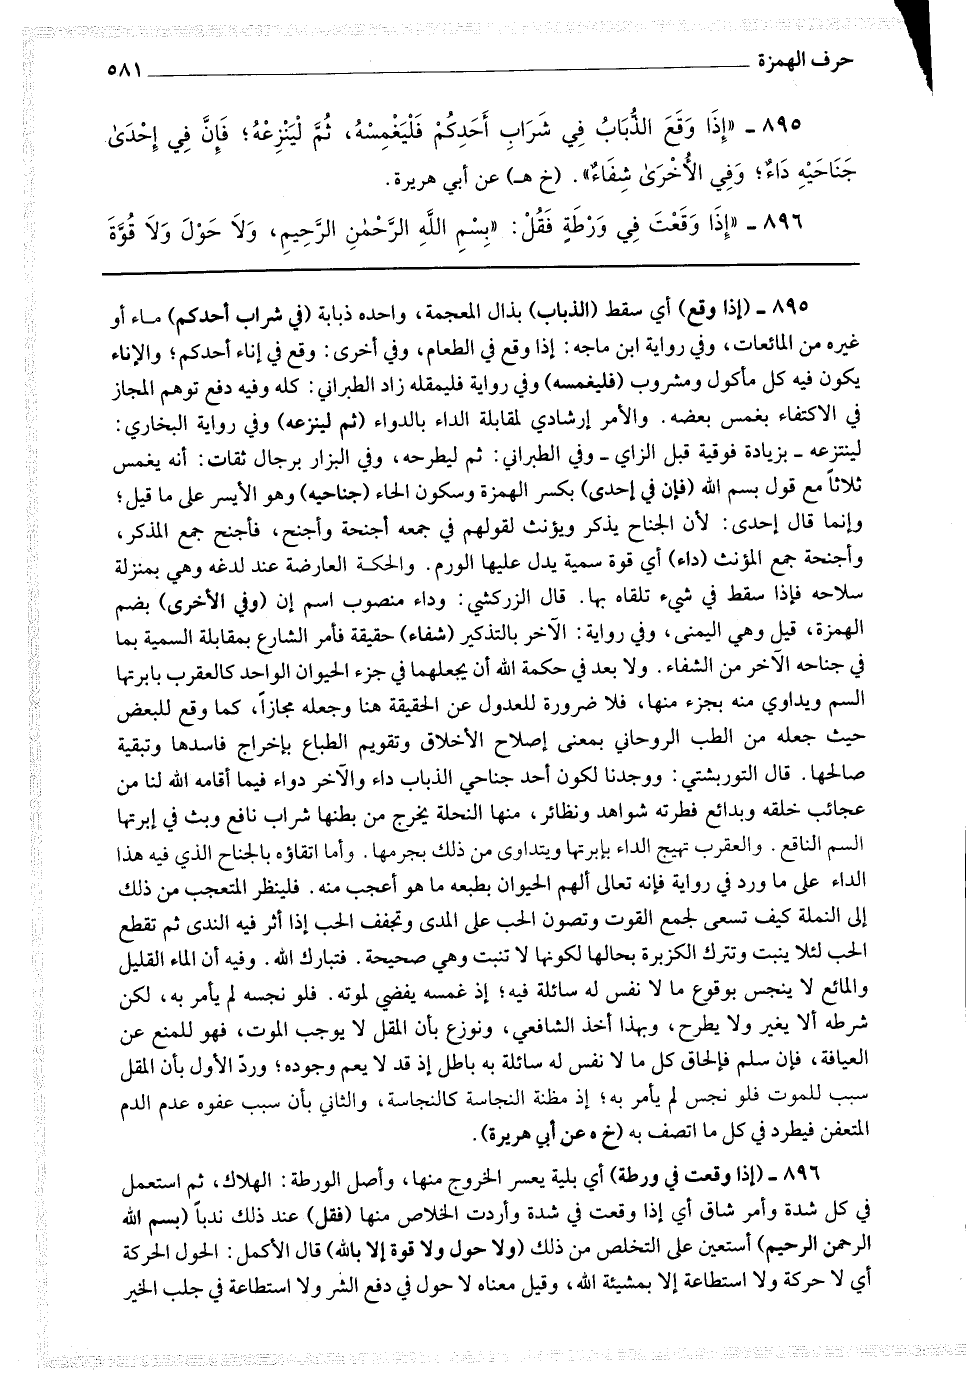 حرف الهمزة ٥٨١
٨٩٥ ـ «إِذَا وَقَعَ الذُّبَابُ فِي شَرَابِ أَحَدِكُمْ فَلْيَغْمِسْهُ، ثُمَّ لْيَنْزِعْهُ؛ فَإِنَّ فِي إِحْدَىٰ
جَنَاحَيْهِ دَاءً؛ وَفِي الأُخْرَىٰ شِفَاءً». (خ هـ) عن أبي هريرة.
٨٩٦ ـ «إِذَا وَقَعْتَ فِي وَرْطَةٍ فَقُلْ: «بِسْمِ اللَّهِ الرَّحْمٰنِ الرَّحِيمِ، وَلَا حَوْلَ وَلَا قُوَّةَ
٨٩٥ ـ (إذا وقع) أي سقط (الذباب) بذال المعجمة، واحده ذبابة (في شراب أحدكم) مـاء أو
غيره من المائعات، وفي رواية ابن ماجه: إذا وقع في الطعام، وفي أخرى: وقع في إناء أحدكم؛ والإناء
يكون فيه كل مأكول ومشروب (فليغمسه) وفي رواية فليمقله زاد الطبراني: كله وفيه دفع توهم المجاز
في الاكتفاء بغمس بعضه. والأمر إرشادي لمقابلة الداء بالدواء (ثم لينزعه) وفي رواية البخاري:
لينتزعه ـ بزيادة فوقية قبل الزاي ـ وفي الطبراني: ثم ليطرحه، وفي البزار برجال ثقات: أنه يغمس
ثلاثاً مع قول بسم الله (فإن في إحدى) بكسر الهمزة وسكون الحاء (جناحيه) وهو الأيسر على ما قيل؛
وإنما قال إحدى: لأن الجناح يذكر ويؤنث لقولهم في جمعه أجنحة وأجنح، فأجنح جمع المذكر،
وأجنحة جمع المؤنث (داء) أي قوة سمية يدل عليها الورم. والحكـة العارضة عند لدغه وهي بمنزلة
سلاحه فإذا سقط في شيء تلقاه بها. قال الزركشي: وداء منصوب اسم إن (وفي الأخرى) بضم
الهمزة، قيل وهي اليمنى، وفي رواية: الآخر بالتذكير (شفاء) حقيقة فأمر الشارع بمقابلة السمية بما
في جناحه الآخر من الشفاء. ولا بعد في حكمة الله أن يجعلهما في جزء الحيوان الواحد كالعقرب بابرتها
السم ويداوي منه بجزء منها، فلا ضرورة للعدول عن الحقيقة هنا وجعله مجازاً، كما وقع للبعض
حيث جعله من الطب الروحاني بمعنى إصلاح الأخلاق وتقويم الطباع بإخراج فاسدها وتبقية
صالحها. قال التوربشتي: ووجدنا لكون أحد جناحي الذباب داء والآخر دواء فيما أقامه الله لنا من
عجائب خلقه وبدائع فطرته شواهد ونظائر، منها النحلة يخرج من بطنها شراب نافع وبث في إبرتها
السم الناقع. والعقرب تهيج الداء بإبرتها ويتداوى من ذلك بجرمها. وأما اتقاؤه بالجناح الذي فيه هذا
الداء على ما ورد في رواية فإنه تعالى ألهم الحيوان بطبعه ما هو أعجب منه. فلينظر المتعجب من ذلك
إلى النملة كيف تسعى لجمع القوت وتصون الحب على المدى وتجفف الحب إذا أثر فيه الندى ثم تقطع
الحب لئلا ينبت وتترك الكزبرة بحالها لكونها لا تنبت وهي صحيحة. فتبارك الله. وفيه أن الماء القليل
والمائع لا ينجس بوقوع ما لا نفس له سائلة فيه؛ إذ غمسه يفضي لموته. فلو نجسه لم يأمر به، لكن
شرطه ألا يغير ولا يطرح، وبهذا أخذ الشافعي، ونوزع بأن المقل لا يوجب الموت، فهو للمنع عن
العيافة، فإن سلم فإلحاق كل ما لا نفس له سائلة به باطل إذ قد لا يعم وجوده؛ وردّ الأول بأن المقل
سبب للموت فلو نجس لم يأمر به؛ إذ مظنة النجاسة كالنجاسة، والثاني بأن سبب عفوه عدم الدم
المتعفن فيطرد في كل ما اتصف به (خ ه عن أبي هريرة).
٨٩٦ ـ (إذا وقعت في ورطة) أي بلية يعسر الخروج منها، وأصل الورطة: الهلاك، ثم استعمل
في كل شدة وأمر شاق أي إذا وقعت في شدة وأردت الخلاص منها (فقل) عند ذلك ندباً (بسم الله
الرحمن الرحيم) أستعين على التخلص من ذلك (ولا حول ولا قوة إلا بالله) قال الأكمل: الحول الحركة
أي لا حركة ولا استطاعة إلا بمشيئة الله، وقيل معناه لا حول في دفع الشر ولا استطاعة في جلب الخير